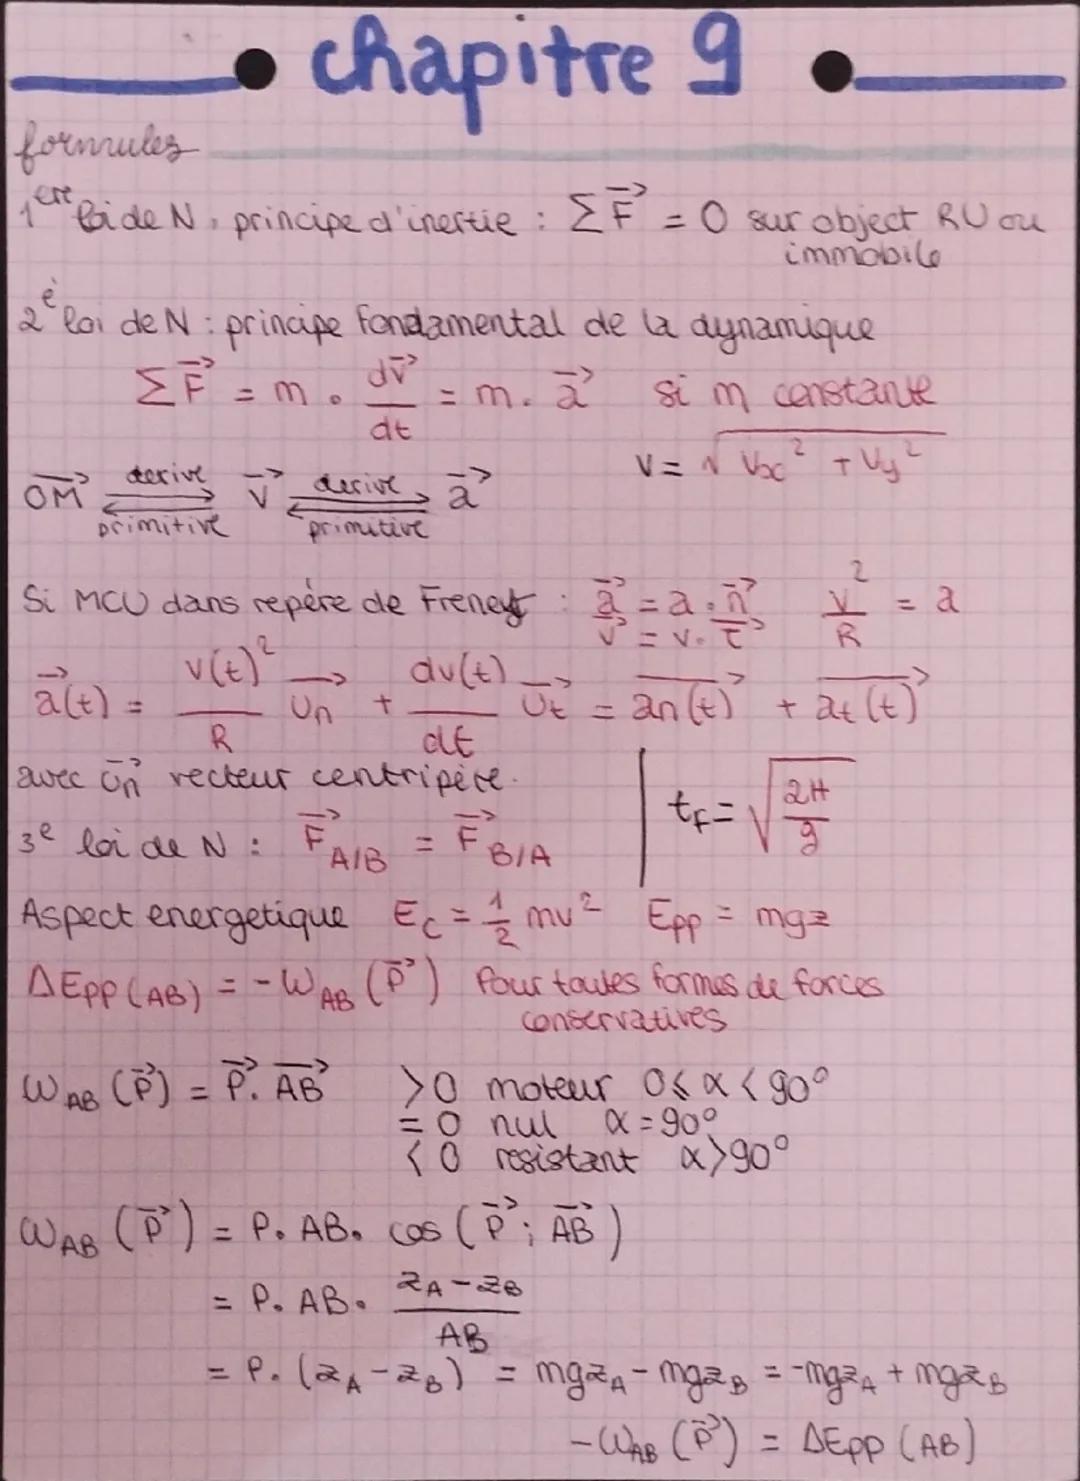 chapitre 9
formules
1ere loi de N, principe d'inertie : ΣF⃗ = 0 sur object RU ou
immobile
2e loi de N : principe Fondamental de la dynamique
ΣF⃗ = m . dv⃗/dt = m . a⃗ si m constante
v = √(vx² + vy²)
OM⃗ ⇄ v⃗ ⇄ a⃗
derive derive
primitive primitive
Si MCU dans repère de Frenet : a⃗ = a . n⃗ v²/R = a
v⃗ = v . τ⃗
a⃗(t) = v(t)²/R Un⃗ + dv(t)/dt Ut⃗ = an(t)⃗ + at(t)⃗
avec Un⃗ vecteur centripète.
tF = √(2H/g)
3e loi de N : F⃗A/B = F⃗B/A
Aspect energetique Ec = 1/2 mv² Epp = mgz
ΔEpp(AB) = -WAB(P⃗) Pour toutes formes de forces
conservatives
WAB(P⃗) = P⃗ . AB⃗ >0 moteur 0⩽α<90°
=0 nul α=90°
<0 resistant α>90°
WAB(P⃗) = P . AB . cos(P⃗ ; AB⃗)
= P . AB . (zA - zB)/AB
= P . (zA - zB) = mgzA - mgzB = -mgzA + mgzB
-WAB(P⃗) = ΔEpp(AB)